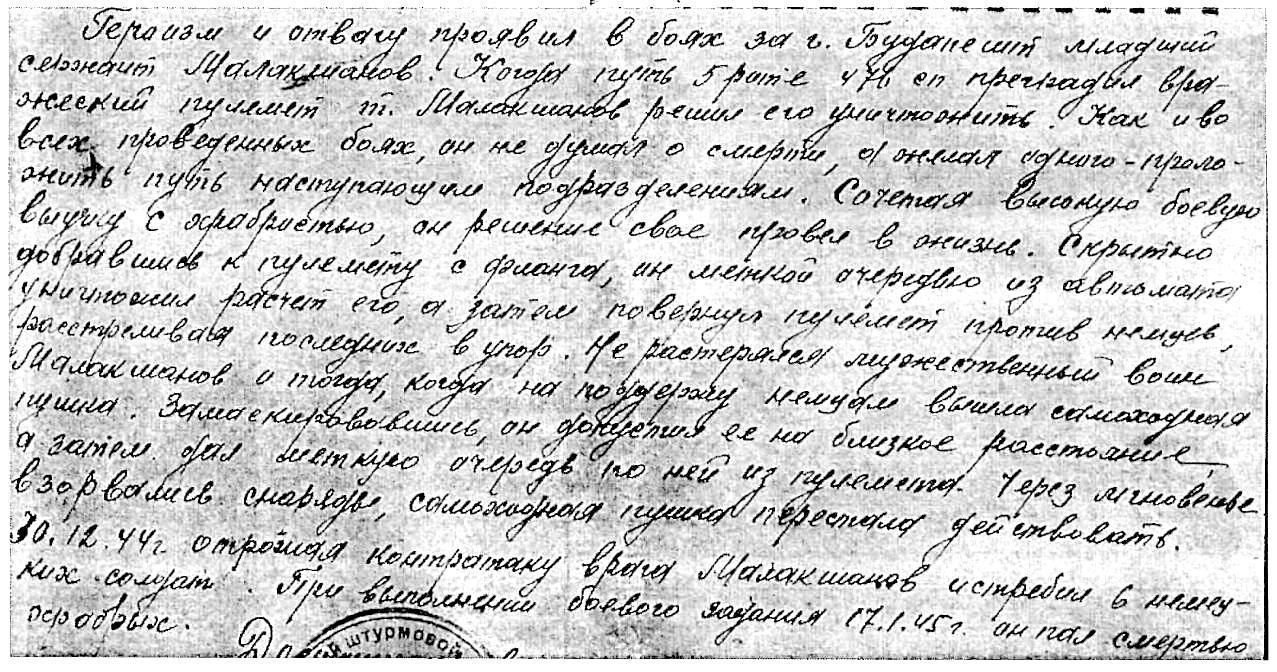 Героизм и отвагу проявил в боях за г. Будапешт младший
сержант Малакшанов. Когда путь 5 роте 476 сп преградил вра-
жеский пулемет т. Малакшанов решил его уничтожить. Как и во
всех проведенных боях, он не думал о смерти, а желал одного - проло-
жить путь наступающим подразделениям. Сочетая высокую боевую
выучку с храбростью, он решение свое провел в жизнь. Скрытно
добравшись к пулемету с фланга, он меткой очередью из автомата
уничтожил расчет его, а затем повернул пулемет против немцев,
расстреливая последних в упор. Не растерялся мужественный воин
Малакшанов и тогда, когда на поддержку немцам вышла самоходная
пушка. Замаскировавшись, он допустил ее на близкое расстояние,
а затем дал меткую очередь по ней из пулемета. Через мгновенье
взорвались снаряды, самоходная пушка перестала действовать.
30.12.44г отражая контратаку врага Малакшанов истребил 6 немец-
ких солдат. При выполнении боевого задания 17.1.45г. он пал смертью
храбрых.
штурмовой